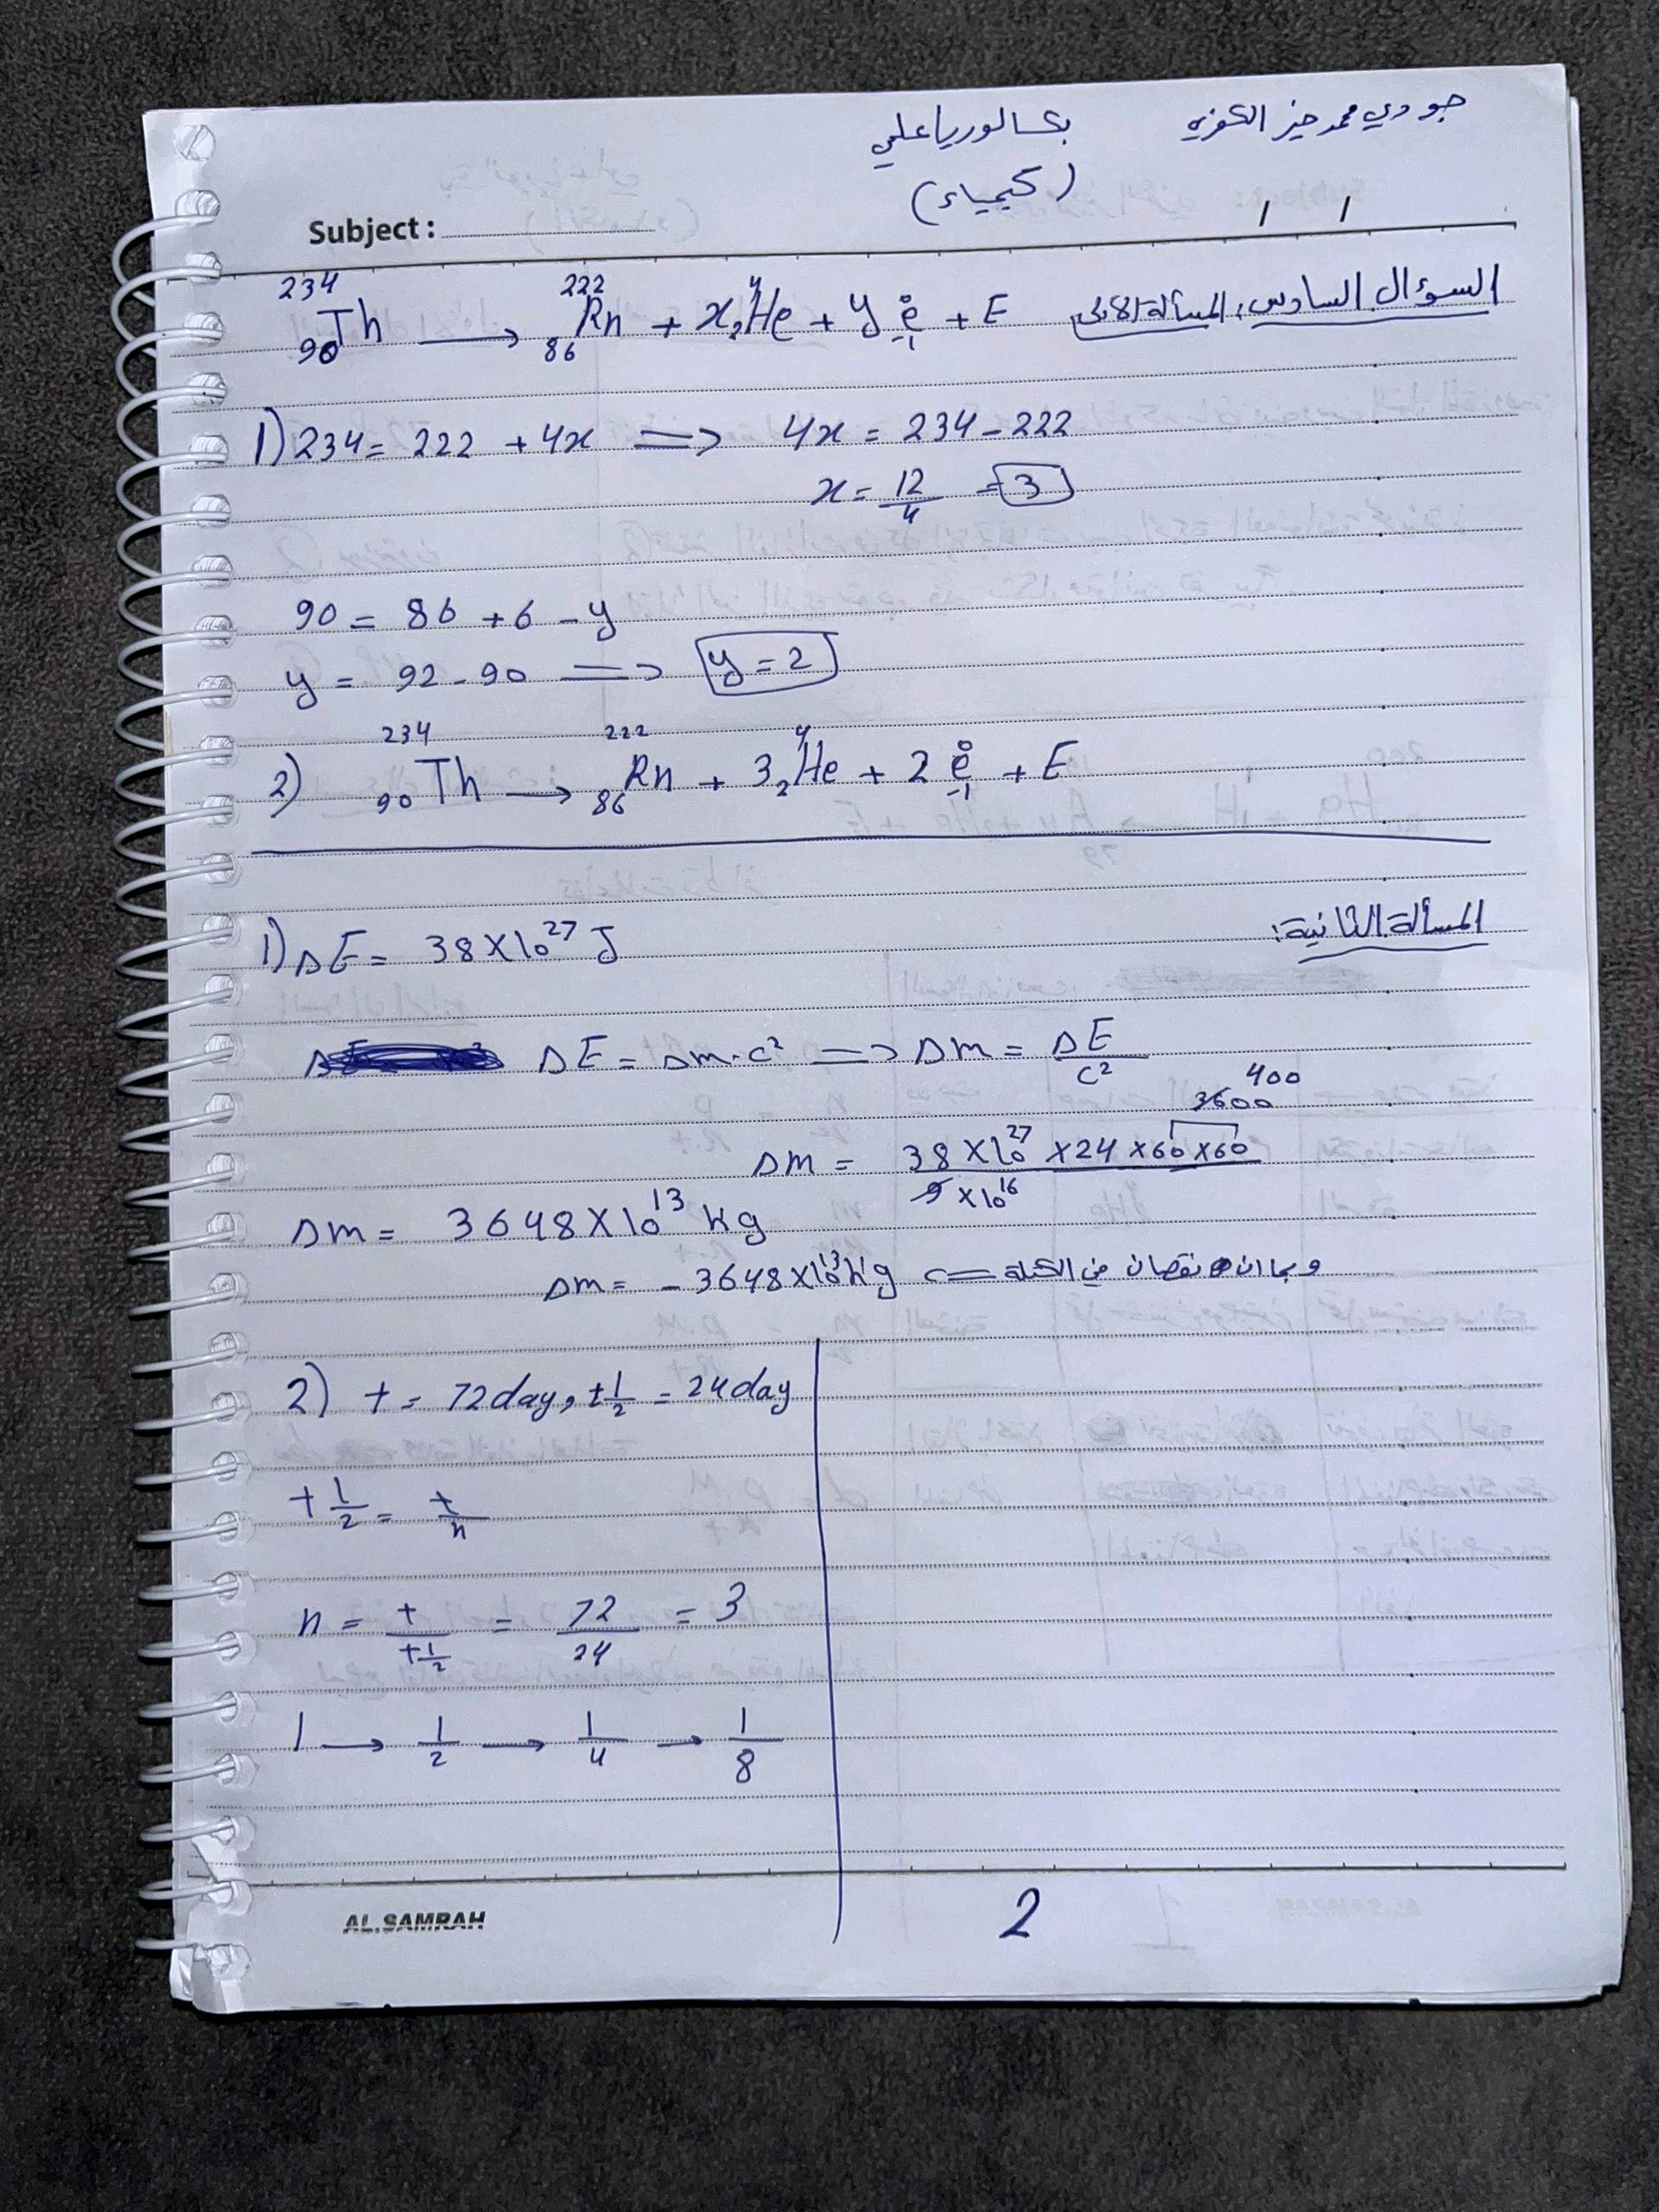 جودي محمد خير الكفري بكالوريا علمي
(كيمياء)
Subject: / /
السؤال السادس: المسألة الأولى
²³⁴₉₀Th → ²²²₈₆Rn + x ⁴₂He + y ⁰₋₁e + E
1) 234 = 222 + 4x => 4x = 234 - 222
x = 12/4 = 3
90 = 86 + 6 - y
y = 92 - 90 => y = 2
2) ²³⁴₉₀Th → ²²²₈₆Rn + 3 ⁴₂He + 2 ⁰₋₁e + E
المسألة الثانية:
1) ΔE = 38 × 10²⁷ J
ΔE = Δm · c² => Δm = ΔE/c²
400
3600
Δm = 38 × 10²⁷ × 24 × 60 × 60 / 9 × 10¹⁶
Δm = 3648 × 10¹³ kg
وبما ان نقصان في الكتلة <= Δm = - 3648 × 10¹³ kg
2) t = 72 day, t 1/2 = 24 day
t 1/2 = t/n
n = t / t 1/2 = 72/24 = 3
1 → 1/2 → 1/4 → 1/8
AL.SAMRAH
2